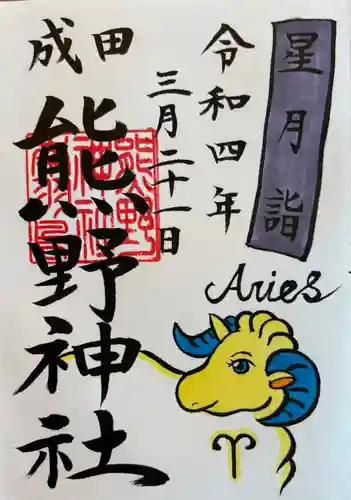 星月詣
令和四年
三月二十一日
成田
熊野神社
Aries